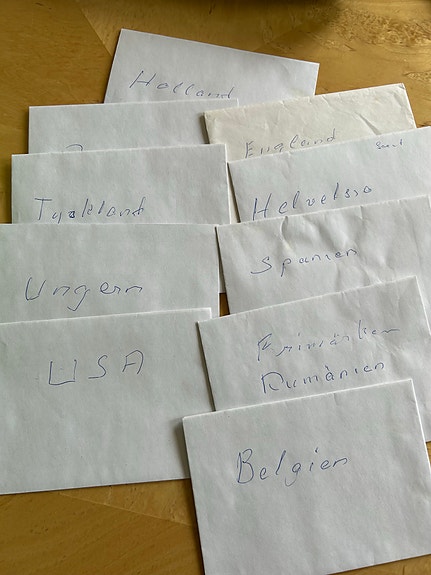 Holland
England
Tyskland
Helvetso
Ungern
Spanien
Frimärken
Rumänien
USA
Belgien